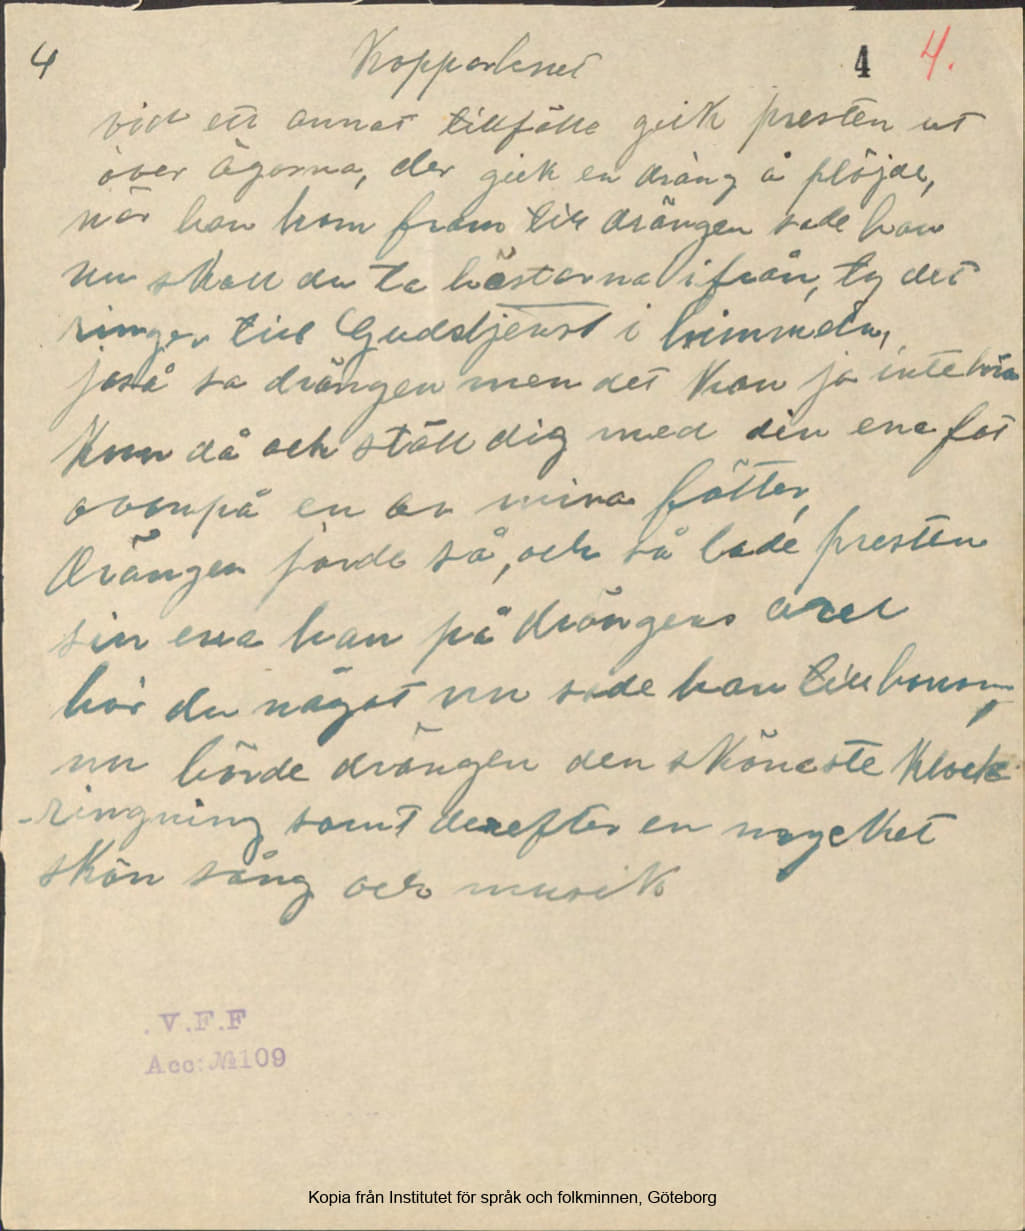 4 Kopparlenet 4 4.
vid ett annat tillfälle gick presten ut
över ägorna, der gick en dräng å plöjde,
när han kom fram till drängen sade han
nu skall du ta hästarna ifrån, ty det
ringer till Gudstjenst i himmeln,
jaså sa drängen men det kan ja inte höra
kom då och ställ dig med din ene fot
ovanpå en av mina fötter,
Drängen jorde så, och så lade presten
sin ena han på drängens axel
hör du något nu sade han till honom,
nu hörde drängen den sköneste klock
-ringning samt derefter en mycket
skön sång och musik
.V.F.F
Acc:№109
Kopia från Institutet för språk och folkminnen, Göteborg